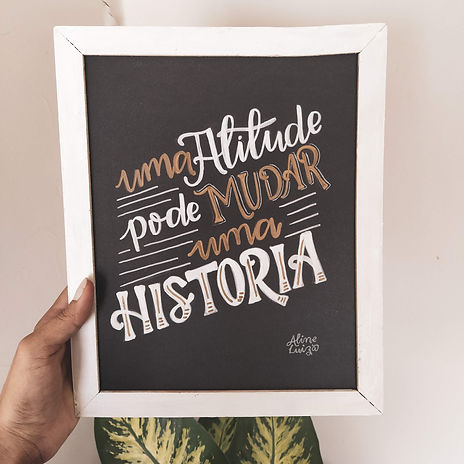 uma Atitude
pode MUDAR
uma
HISTORIA
Aline
Luiza